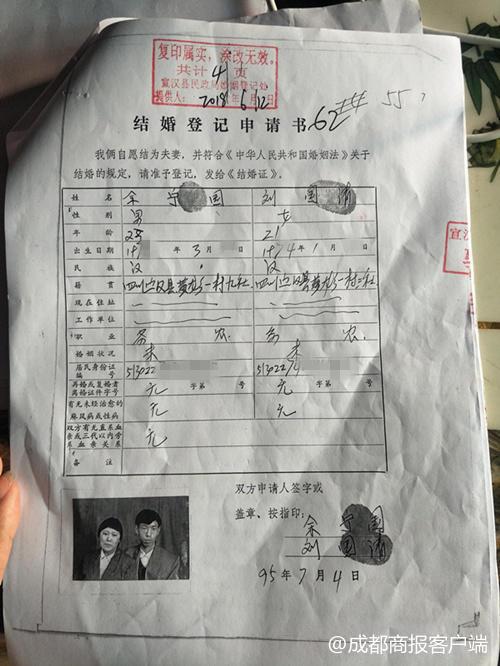 复印属实，涂改无效。
共计 4 页
宣汉县民政局婚姻登记处
提供人： 2018年6月12日
结婚登记申请书
我俩自愿结为夫妻，并符合《中华人民共和国婚姻法》关于
结婚的规定，请准予登记，发给《结婚证》。
姓 名 余宁国 刘国清
性 别 男 女
年 龄 25 21
出生日期 年 3 月 日 年 1 月 日
民 族 汉 汉
籍 贯
现在住址
工作单位
职 业 务农 务农
婚姻状况 未 未
居民身份证编号 513022 513022
再婚或复婚者离婚证件字号 无 字第 号 无 字第 号
有无未经治愈的麻风病或性病 无 无
双方有无直系血亲或三代以内旁系血亲关系 无
备 注
双方申请人签字或
盖章、按指印： 余宁国
刘国清
95年7月4日
@成都商报客户端